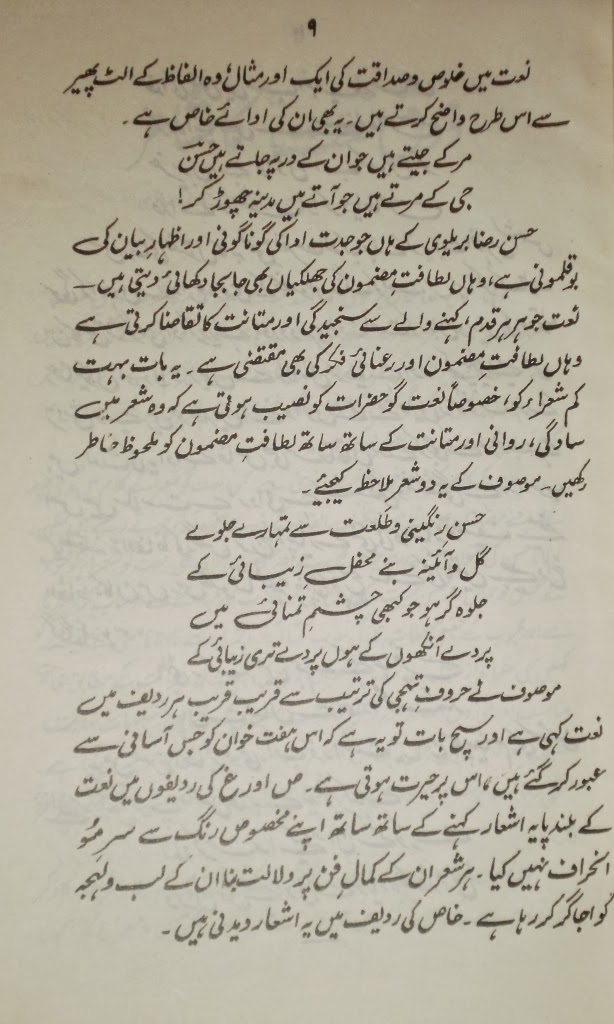 ۹
نعت میں خلوص و صداقت کی ایک اور مثال، وہ الفاظ کے الٹ پھیر
سے اس طرح واضح کرتے ہیں۔ یہ بھی ان کی ادائے خاص ہے۔
مر کے جیتے ہیں جو ان کے در پہ جاتے ہیں حسنؔ
جی کے مرتے ہیں جو آتے ہیں مدینہ چھوڑ کر!
حسن رضا بریلوی کے ہاں جو جدت ادا کی گوناگونی اور اظہارِ بیان کی
بوقلمونی ہے، وہاں لطافتِ مضمون کی جھلکیاں بھی جابجا دکھائی دیتی ہیں۔
نعت جو ہر ہر قدم، کہنے والے سے سنجیدگی اور متانت کا تقاضا کرتی ہے
وہاں لطافتِ مضمون اور رعنائیِ فکر کی بھی مقتضی ہے۔ یہ بات بہت
کم شعراء کو، خصوصاً نعت گو حضرات کو نصیب ہوتی ہے کہ وہ شعر میں
سادگی، روانی اور متانت کے ساتھ ساتھ لطافتِ مضمون کو ملحوظ خاطر
رکھیں۔ موصوف کے یہ دو شعر ملاحظہ کیجئیے۔
حسن رنگینی و طلعت سے تمہارے جلوے
گل و آئینہ بنے محفلِ زیبائی کے
جلوہ گر ہو جو کبھی چشمِ تمنائی میں
پردے آنکھوں کے ہوں پردے تری زیبائی کے
موصوف نے حروفِ تہجی کی ترتیب سے قریب قریب ہر ردیف میں
نعت کہی ہے اور سچ بات تو یہ ہے کہ اس ہفت خوان کو جس آسانی سے
عبور کر گئے ہیں، اس پر حیرت ہوتی ہے۔ ص اور غ کی ردیفوں میں نعت
کے بلند پایہ اشعار کہنے کے ساتھ ساتھ اپنے مخصوص رنگ سے سرِ مُو
انحراف نہیں کیا۔ ہر شعر ان کے کمالِ فن پر دلالت بنا ان کے لب و لہجہ
کو اجاگر کر رہا ہے۔ خاص کی ردیف میں یہ اشعار دیدنی ہیں۔